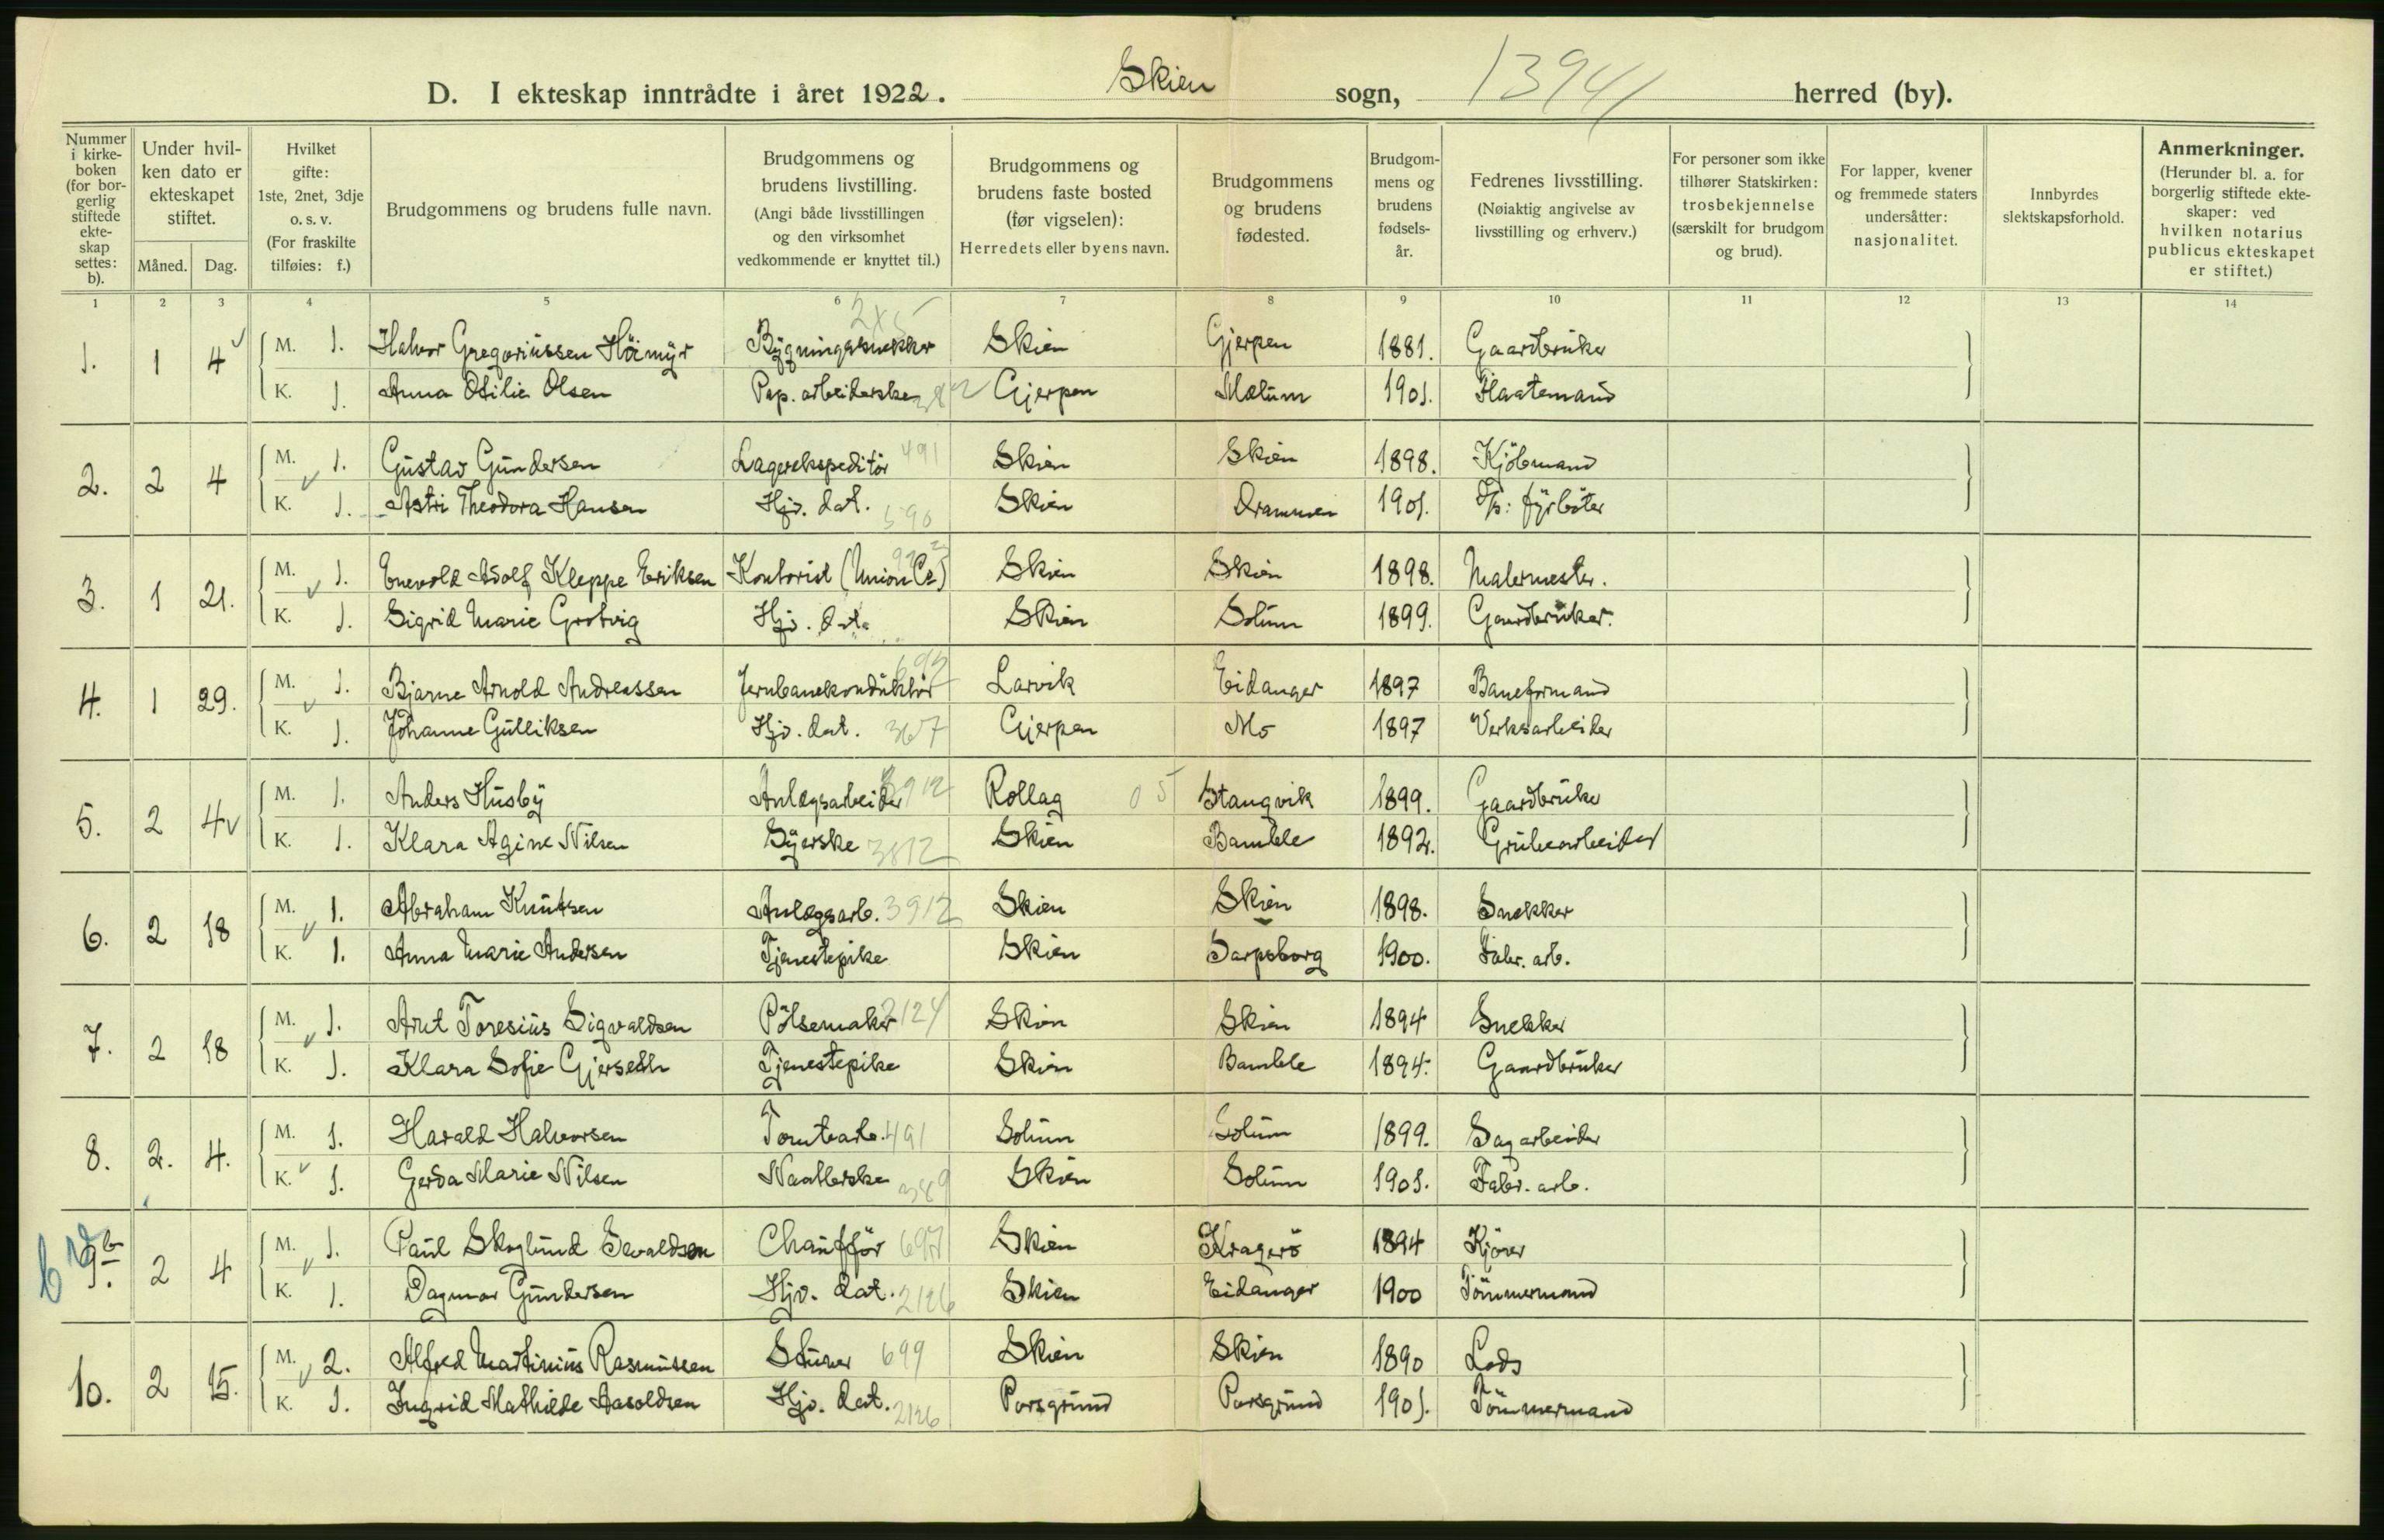 D. I ekteskap inntrådte i året 1922. Skien sogn, 13941 herred (by).
Nummer i kirkeboken (for borgerlig stiftede ekteskap settes: b).
Under hvilken dato er ekteskapet stiftet.
Måned. Dag.
Hvilket gifte: 1ste, 2net, 3dje o. s. v. (For fraskilte tilføies: f.)
Brudgommens og brudens fulle navn.
Brudgommens og brudens livstilling. (Angi både livsstillingen og den virksomhet vedkommende er knyttet til.)
Brudgommens og brudens faste bosted (før vigselen): Herredets eller byens navn.
Brudgommens og brudens fødested.
Brudgommens og brudens fødselsår.
Fedrenes livsstilling. (Nøiaktig angivelse av livsstilling og erhverv.)
For personer som ikke tilhører Statskirken: trosbekjennelse (særskilt for brudgom og brud).
For lapper, kvener og fremmede staters undersåtter: nasjonalitet.
Innbyrdes slektskapsforhold.
Anmerkninger. (Herunder bl. a. for borgerlig stiftede ekteskaper: ved hvilken notarius publicus ekteskapet er stiftet.)
1 2 3 4 5 6 7 8 9 10 11 12 13 14
1. 1 4 M. 1. Halvor Gregoriussen Höimyr Bygningssnekker Skien Gjerpen 1881. Gaardbruker
K. 1. Anna Otilie Olsen Pap. arbeiderske Gjerpen Mælum 1901. Flaatemand
2. 2 4 M. 1. Gustav Gundersen Lagerekspeditör 491 Skien Skien 1898. Kjöbmand
K. 1. Astri Theodora Hansen Hjv. dat. 590 Skien Drammen 1901. fyrböter
3. 1 21. M. 1. Enevold Adolf Kleppe Eriksen Kontorist (Union Co) Skien Skien 1898. Malermester.
K. 1. Sigrid Marie Grotvig Hjv. dat. Skien Solum 1899. Gaardbruker.
4. 1 29. M. 1. Bjarne Arnold Andreassen Jernbanekonduktör Larvik Eidanger 1897 Baneformand
K. 1. Johanne Gulliksen Hjv. dat. 367 Gjerpen Mo 1897 Verksarbeider
5. 2 4 M. 1. Anders Husby Anlægsarbeider 3912 Rollag 05 Stangvik 1899. Gaardbruker
K. 1. Klara Agine Nilsen Syerske 3812 Skien Bamble 1892. Grubearbeider
6. 2 18 M. 1. Abraham Knutsen Anlægsarb. 3912 Skien Skien 1898. Snekker
K. 1. Anna Marie Andersen Tjenestepike Skien Sarpsborg 1900. Fabr. arb.
7. 2 18 M. 1. Arnt Toresius Sigvaldsen Pölsemaker 2124 Skien Skien 1894 Snekker
K. 1. Klara Sofie Gjerseth Tjenestepike Skien Bamble 1894. Gaardbruker
8. 2. 4. M. 1. Harald Halvorsen Tomtearb. 491 Solum Solum 1899. Sagarbeider
K. 1. Gerda Marie Nilsen Naatlerske 389 Skien Solum 1901. Fabr. arb.
9. b 2 4 M. 1. Paul Skoglund Sevaldsen Chaufför 697 Skien Kragerö 1894 Kjörer
K. 1. Dagmar Gundersen Hjv. dat. 2126 Skien Eidanger 1900 Tömmermand
10. 2 15. M. 2. Alfred Martinius Rasmussen Stuer 699 Skien Skien 1890 Lods
K. 1. Ingrid Mathilde Aasoldsen Hjv. dat. 2126 Porsgrund Porsgrund 1901. Tömmermand